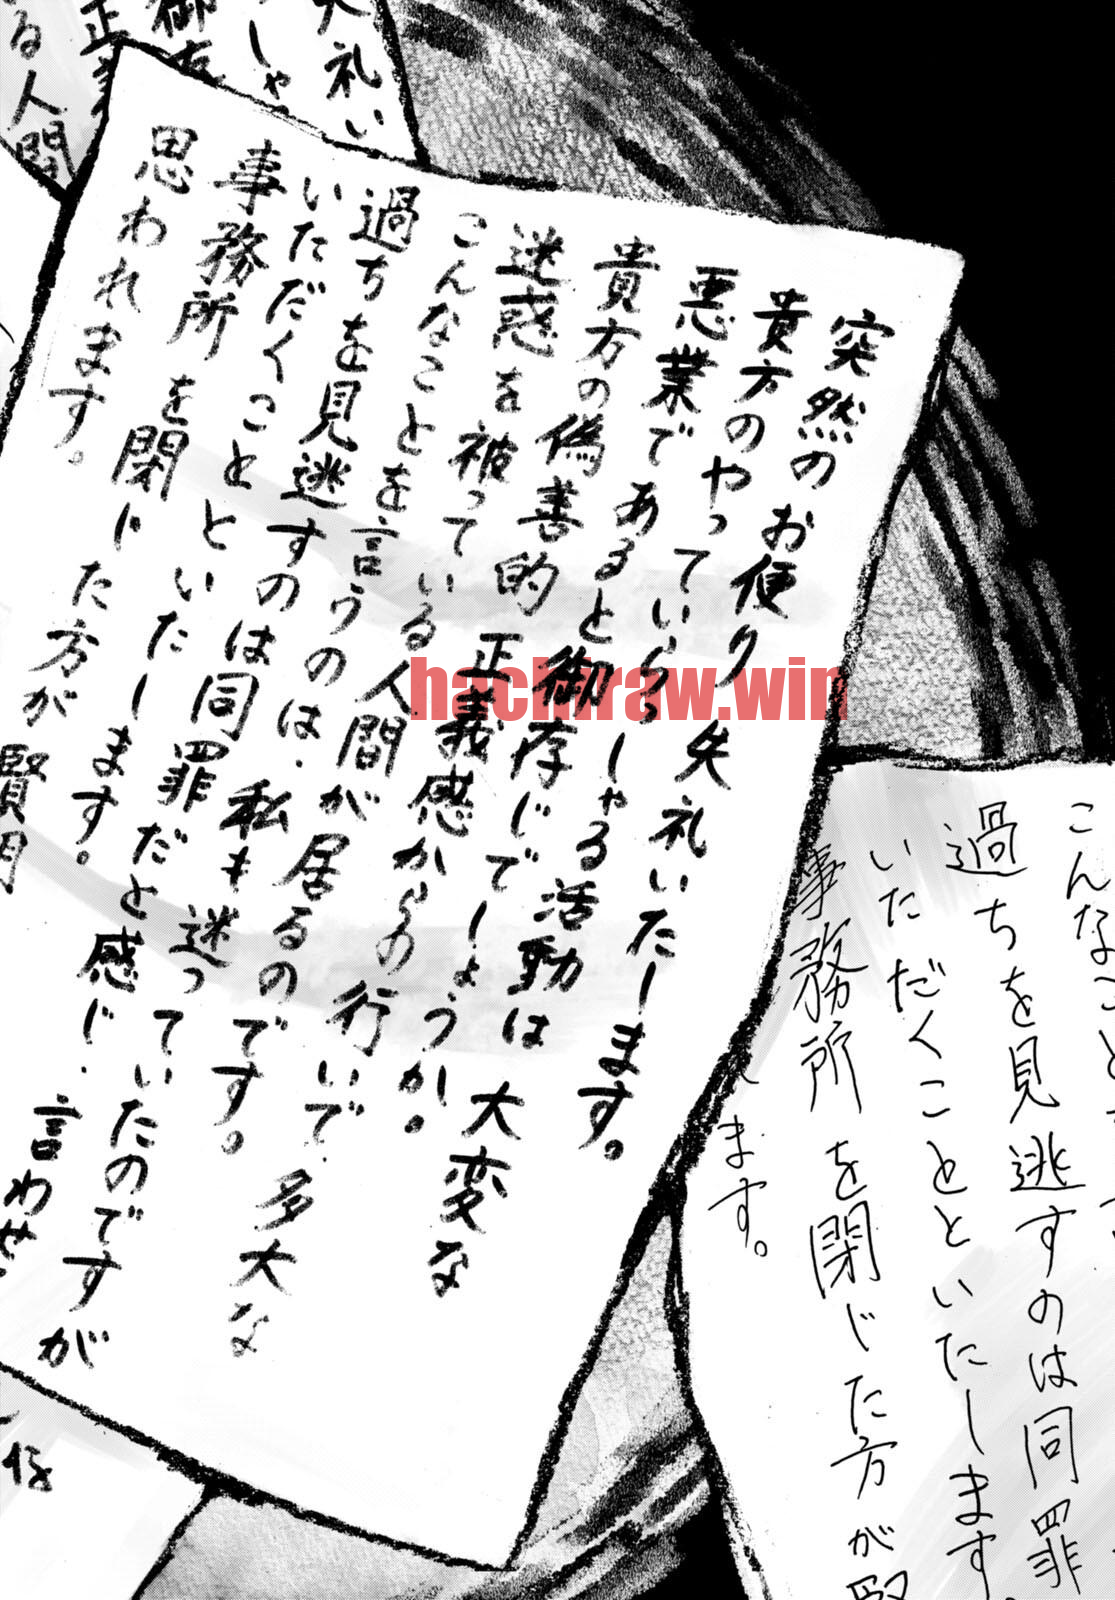 突然のお便り失礼いたします。
貴方のやっていらっしゃる活動は大変な
悪業であると御存じでしょうか。
貴方の偽善的正義感からの行いで、多大な
迷惑を被っている人間が居るのです。
こんなことを言うのは、私も迷っていたのですが
過ちを見逃すのは同罪だと感じ、言わせ
いただくことといたします。
事務所を閉じた方が賢明
思われます。
こんなこと
過ちを見逃すのは同罪
いただくことといたします
事務所を閉じた方が
ます。
礼い
しゃ
御存
正義
る人間
hachiraw.win